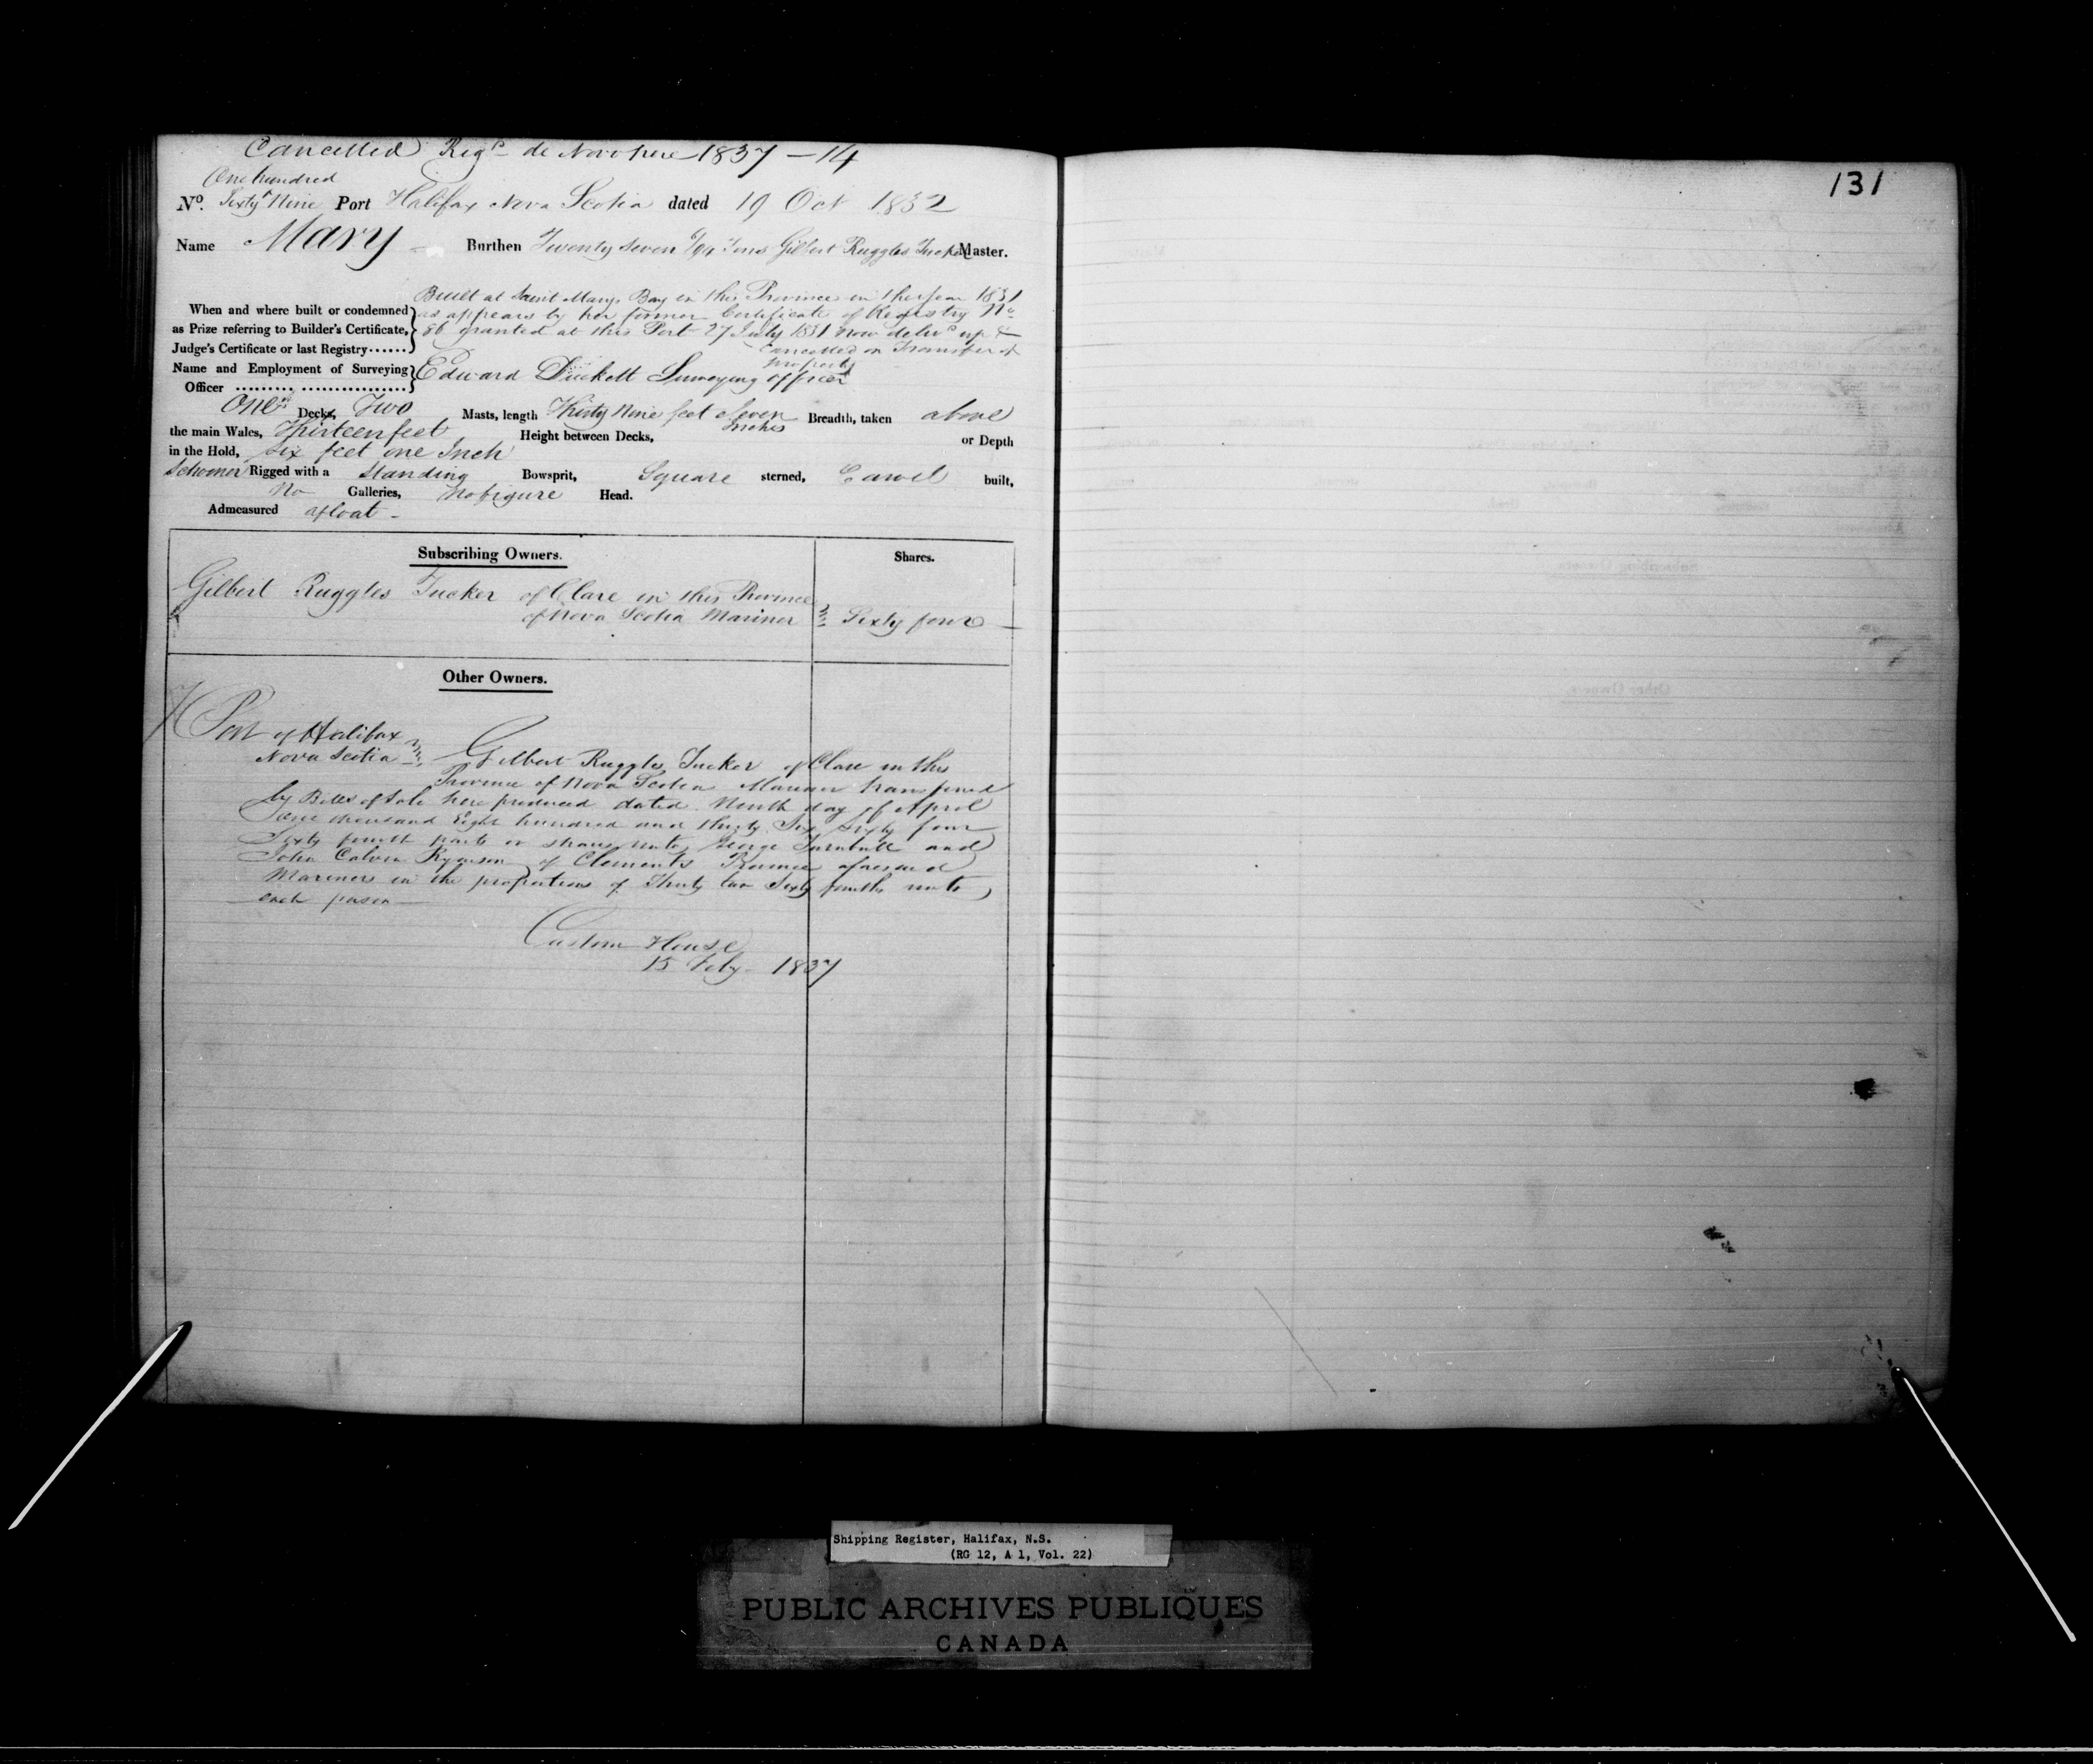 Cancelled Reg'd de Novo here 1837 - 14
131
One hundred
No. Sixty Nine Port Halifax Nova Scotia dated 19 Oct 1832
Name Mary Burthen Twenty Seven /94 Tons Gilbert Ruggles Tucker Master.
Built at Saint Marys Bay in this Province in the year 1831
When and where built or condemned as appears by her former Certificate of Registry No
as Prize referring to Builder's Certificate, 86 granted at this Port 27 July 1831 now deliv'd up &
Judge's Certificate or last Registry...... Cancelled on Transfer of
property
Name and Employment of Surveying Edward Duckett Surveying officer
Officer .......... .................
One Decks, Two Masts, length Thirty Nine feet Seven Inches Breadth, taken above
the main Wales, Thirteen feet Height between Decks, or Depth
in the Hold, six feet one Inch
Schooner Rigged with a Standing Bowsprit, Square sterned, Carvel built,
No Galleries, No figure Head.
Admeasured afloat -
Subscribing Owners. Shares.
Gilbert Ruggles Tucker of Clare in this Province
of Nova Scotia Mariner Sixty four
Other Owners.
Port of Halifax
Nova Scotia Gilbert Ruggles Tucker of Clare in this
Province of Nova Scotia Mariner transferred
by Bills of Sale here produced dated Ninth day of April
One thousand Eight hundred and thirty Six Sixty four
Sixty fourth parts or shares unto George Turnbull and
John Calvin Ryerson of Clements Province aforesaid
Mariners in the proportions of Thirty two Sixty fourths unto
each person
Custom House
15 Feby 1837
Shipping Register, Halifax, N.S.
(RG 12, A 1, Vol. 22)
PUBLIC ARCHIVES PUBLIQUES
CANADA